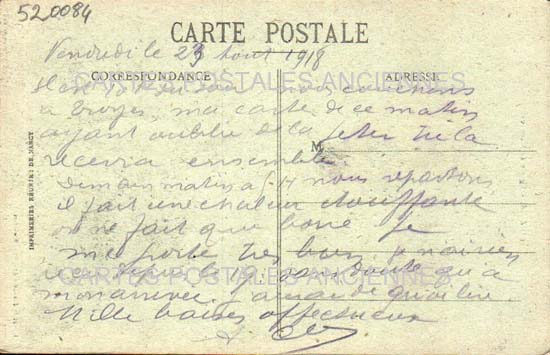 520084
CARTE POSTALE
Vendredi le 23 Aout 1918
CORRESPONDANCE
ADRESSE
CARTES POSTALES ANCIENNES
nous couchons
a Troyes, ma carte de ce matin
ayant oublié de la jeter tu la
M
recevra ensemble
Demain matin à 5 H nous repartons,
il fait une chaleur étouffante
on ne fait que boire Je
me porte très bien
CARTES POSTALES ANCIENNES
sans doute qu a
mon arrivée j'aurai de quoi lire
Mille baisers affectueux
IMPRIMERIES REUNIES DE NANCY